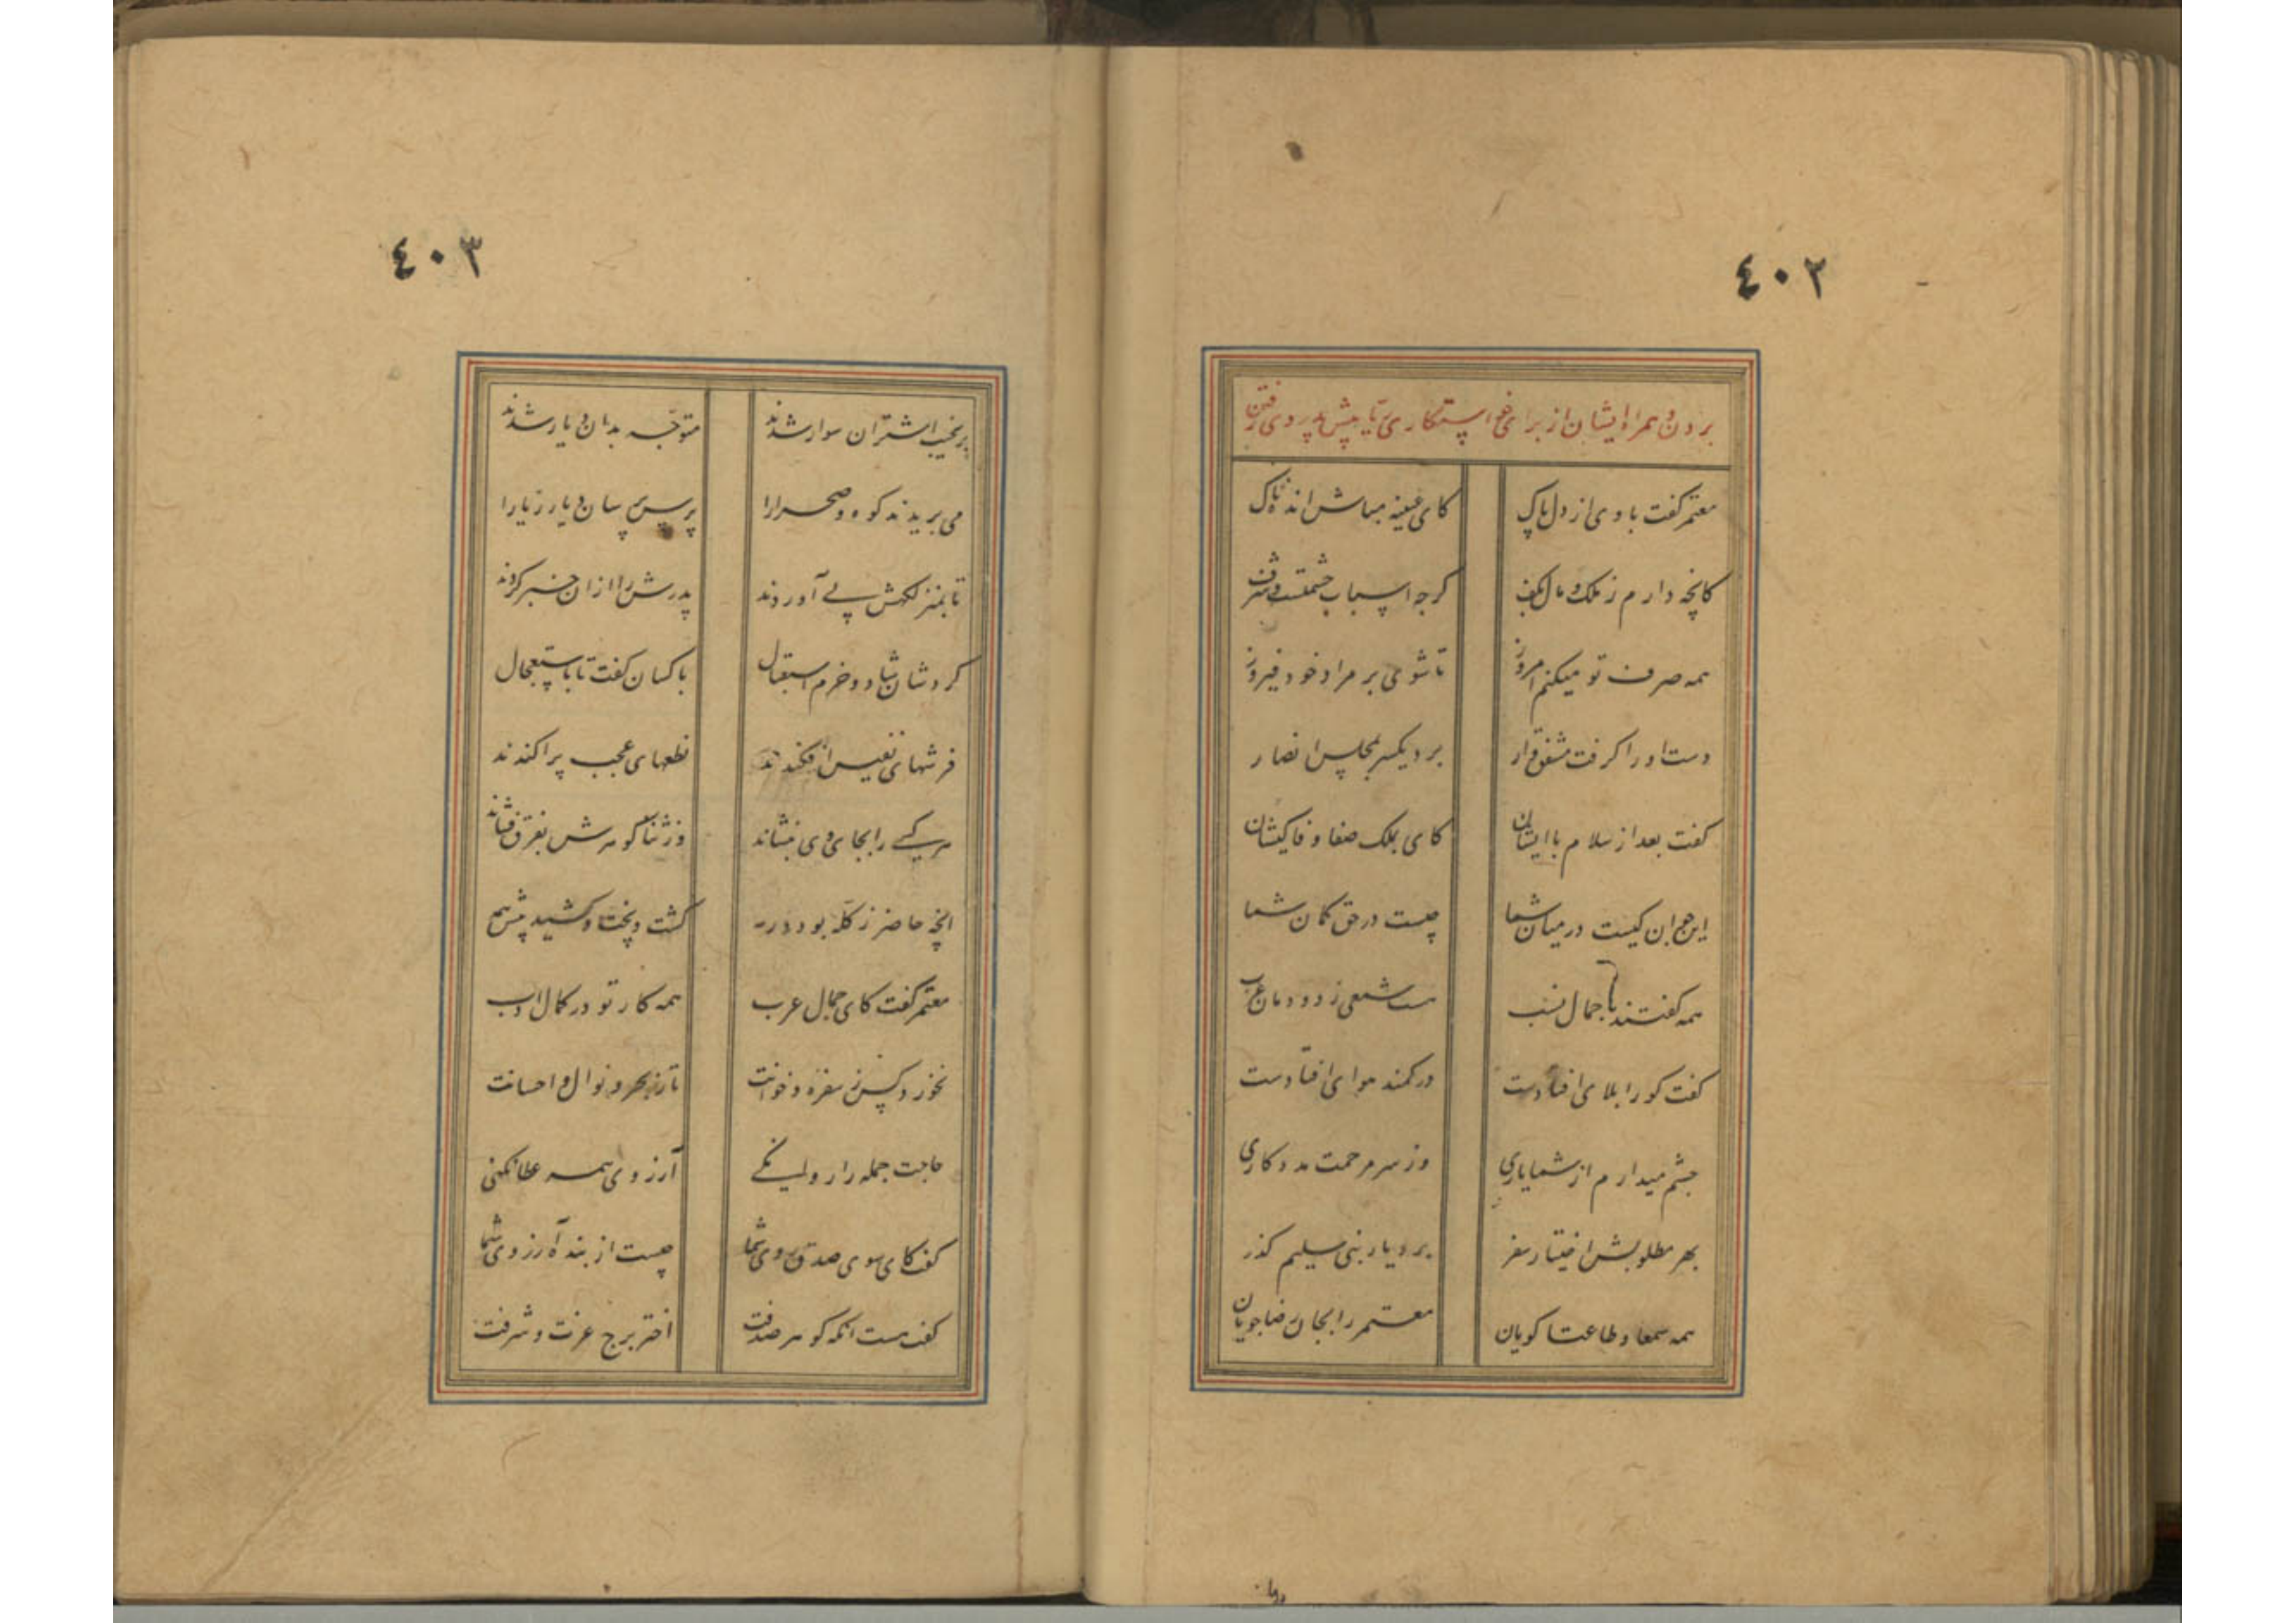 ٤٠٢
بردن و همراه ایشان از برای خواستکاری ریا پیش پدر وی رفتن
معتمر کفت با وی از دل پاک کای عیینه مباش اندهناک
کانچه دارم ز ملک و مال بکف کرچه اسباب حشمتست و شرف
همه صرف تو میکنم امروز تا شوی بر مراد خود فیروز
دست او را کرفت مشفق‌وار برد یکسر بمجلس انصار
کفت بعد از سلام با ایشان کای بملک صفا وفا کیشان
این جوان کیست در میان شما چیست در حق کمان شما
همه کفتند با جمال نسب هست شمعی ز دودمان عرب
کفت کو را بلای افتادست در کمند هوای افتادست
چشم میدارم از شما یاری وز سر مرحمت مددکاری
بهر مطلوبش اختیار سفر بر دیار بنی سلیم کذر
همه سمعا و طاعتا کویان معتمر را بجان رضا جویان
٤٠٣
بر نجیب اشتران سوار شدند متوجّه بدان دیار شدند
می بریدند کوه و صحرا را پرس پرسان دیار ریا را
تا بمنزلکهش پی آوردند پدرش را از ان خبر کردند
کرد شان شاد و خرم استقبال با کسان کفت تا باستعجال
فرشهای نفیس افکندند نطعهای عجب پراکندند
هر یکی را بجای وی بنشاند وز ثنا کوهرش بفرق فشاند
انچه حاضر ز کله بود و رمه کشت و پخت و کشید پیش همه
معتمر کفت کای جمال عرب همه کار تو در کمال ادب
نخورد کس ز سفره و خوانت تا ز بحر و نوال و احسانت
حاجت جمله را روا نکنی آرزوی همه عطا نکنی
کفت کای سوی صدق روی شما چیست از بنده آرزوی شما
کفت هست انکه کوهر صدفت اختر برج عزت و شرفت